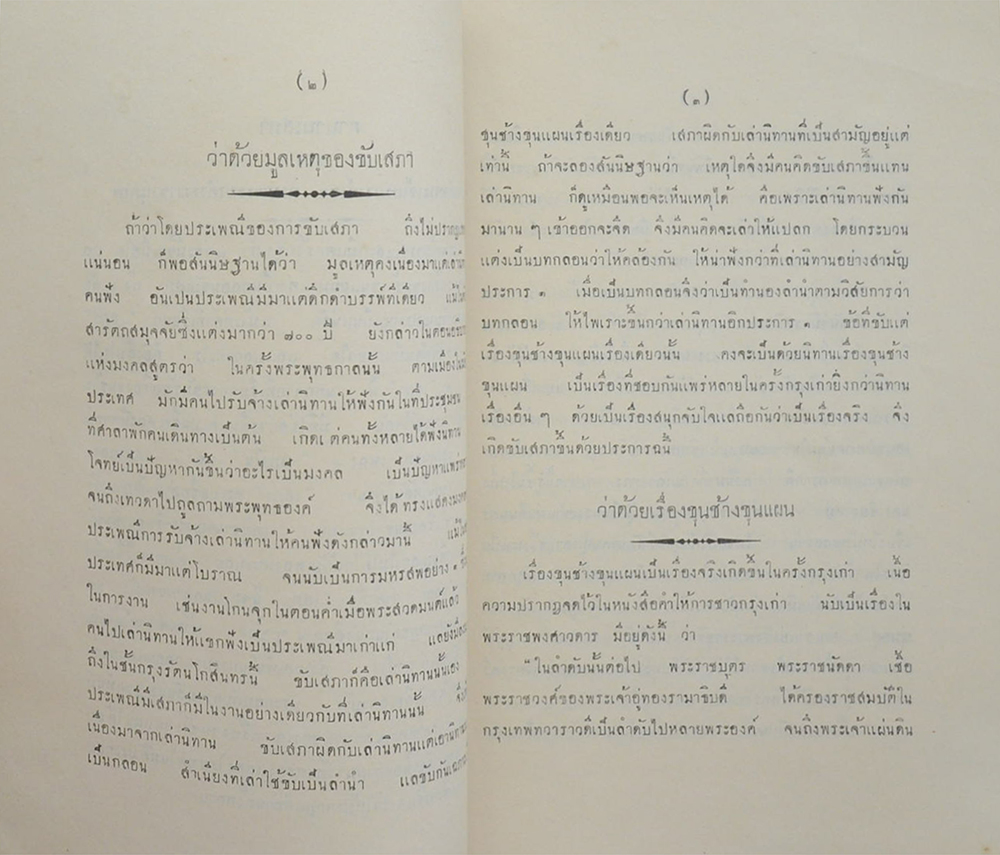 (๒)
ว่าด้วยมูลเหตุของขับเสภา
ถ้าว่าโดยประเพณีของการขับเสภา ถึงไม่ปรากฏ
แน่นอน ก็พอสันนิษฐานได้ว่า มูลเหตุคงเนื่องมาแต่เล่า
คนฟัง อันเปนประเพณีมีมาแต่ดึกดำบรรพ์ทีเดียว แม้ใน
สารัตถสมุจจัยซึ่งแต่งมากว่า ๗๐๐ ปี ยังกล่าวในตอน
แห่งมงคลสูตรว่า ในครั้งพระพุทธกาลนั้น ตามเมืองใน
ประเทศ มักมีคนไปรับจ้างเล่านิทานให้ฟังกันในที่ประชุมชน
ที่ศาลาพักคนเดินทางเป็นต้น เกิดแต่คนทั้งหลายได้ฟังนิทาน
โจทย์เป็นปัญหากันขึ้นว่าอะไรเป็นมงคล เป็นปัญหาแพร่
จนถึงเทวดาไปทูลถามพระพุทธองค์ จึงได้ทรงแสดงมงคล
ประเพณีการรับจ้างเล่านิทานให้คนฟังดังกล่าวมานี้ แม้ใน
ประเทศก็มีมาแต่โบราณ จนนับเป็นการมหรสพอย่าง ๑
ในการงาน เช่นงานโกนจุกในตอนค่ำเมื่อพระสวดมนต์แล้ว
คนไปเล่านิทานให้แขกฟังเป็นประเพณีมาเก่าแก่ แลยังมี
ถึงในชั้นกรุงรัตนโกสินทรนี้ ขับเสภาก็คือเล่านิทานนั้นเอง
ประเพณีมีเสภาก็มีในงานอย่างเดียวกับที่เล่านิทานนั้น
เนื่องมาจากเล่านิทาน ขับเสภาผิดกับเล่านิทานแต่เอานิทาน
เป็นกลอน สำเนียงที่เล่าใช้ขับเป็นลำนำ แลขับกัน
(๓)
ขุนช้างขุนแผนเรื่องเดียว เสภาผิดกับเล่านิทานที่เป็นสามัญอยู่แต่
เท่านี้ ถ้าจะลองสันนิษฐานว่า เหตุใดจึงมีคนคิดขับเสภาขึ้นแทน
เล่านิทาน ก็ดูเหมือนพอจะเห็นเหตุได้ คือเพราะเล่านิทานฟังกัน
มานาน ๆ เข้าออกจะจืด จึงมีคนคิดจะเล่าให้แปลก โดยกระบวน
แต่งเป็นบทกลอนว่าให้คล้องกัน ให้น่าฟังกว่าที่เล่านิทานอย่างสามัญ
ประการ ๑ เมื่อเป็นบทกลอนจึงว่าเป็นทำนองลำนำตามวิสัยการว่า
บทกลอน ให้ไพเราะขึ้นกว่าเล่านิทานอีกประการ ๑ ข้อที่ขับแต่
เรื่องขุนช้างขุนแผนเรื่องเดียวนั้น คงจะเป็นด้วยนิทานเรื่องขุนช้าง
ขุนแผน เป็นเรื่องที่ชอบกันแพร่หลายในครั้งกรุงเก่ายิ่งกว่านิทาน
เรื่องอื่น ๆ ด้วยเป็นเรื่องสนุกจับใจแลถือกันว่าเป็นเรื่องจริง จึง
เกิดขับเสภาขึ้นด้วยประการฉนี้
ว่าด้วยเรื่องขุนช้างขุนแผน
เรื่องขุนช้างขุนแผนเป็นเรื่องจริงเกิดขึ้นในครั้งกรุงเก่า เนื้อ
ความปรากฏจดไว้ในหนังสือคำให้การชาวกรุงเก่า นับเป็นเรื่องใน
พระราชพงศาวดาร มีอยู่ดังนี้ ว่า
“ในลำดับนั้นต่อไป พระราชบุตร พระราชนัดดา เชื้อ
พระราชวงศ์ของพระเจ้าอู่ทองรามาธิบดี ได้ครองราชสมบัติใน
กรุงเทพทวาราวดีเป็นลำดับไปหลายพระองค์ จนถึงพระเจ้าแผ่นดิน